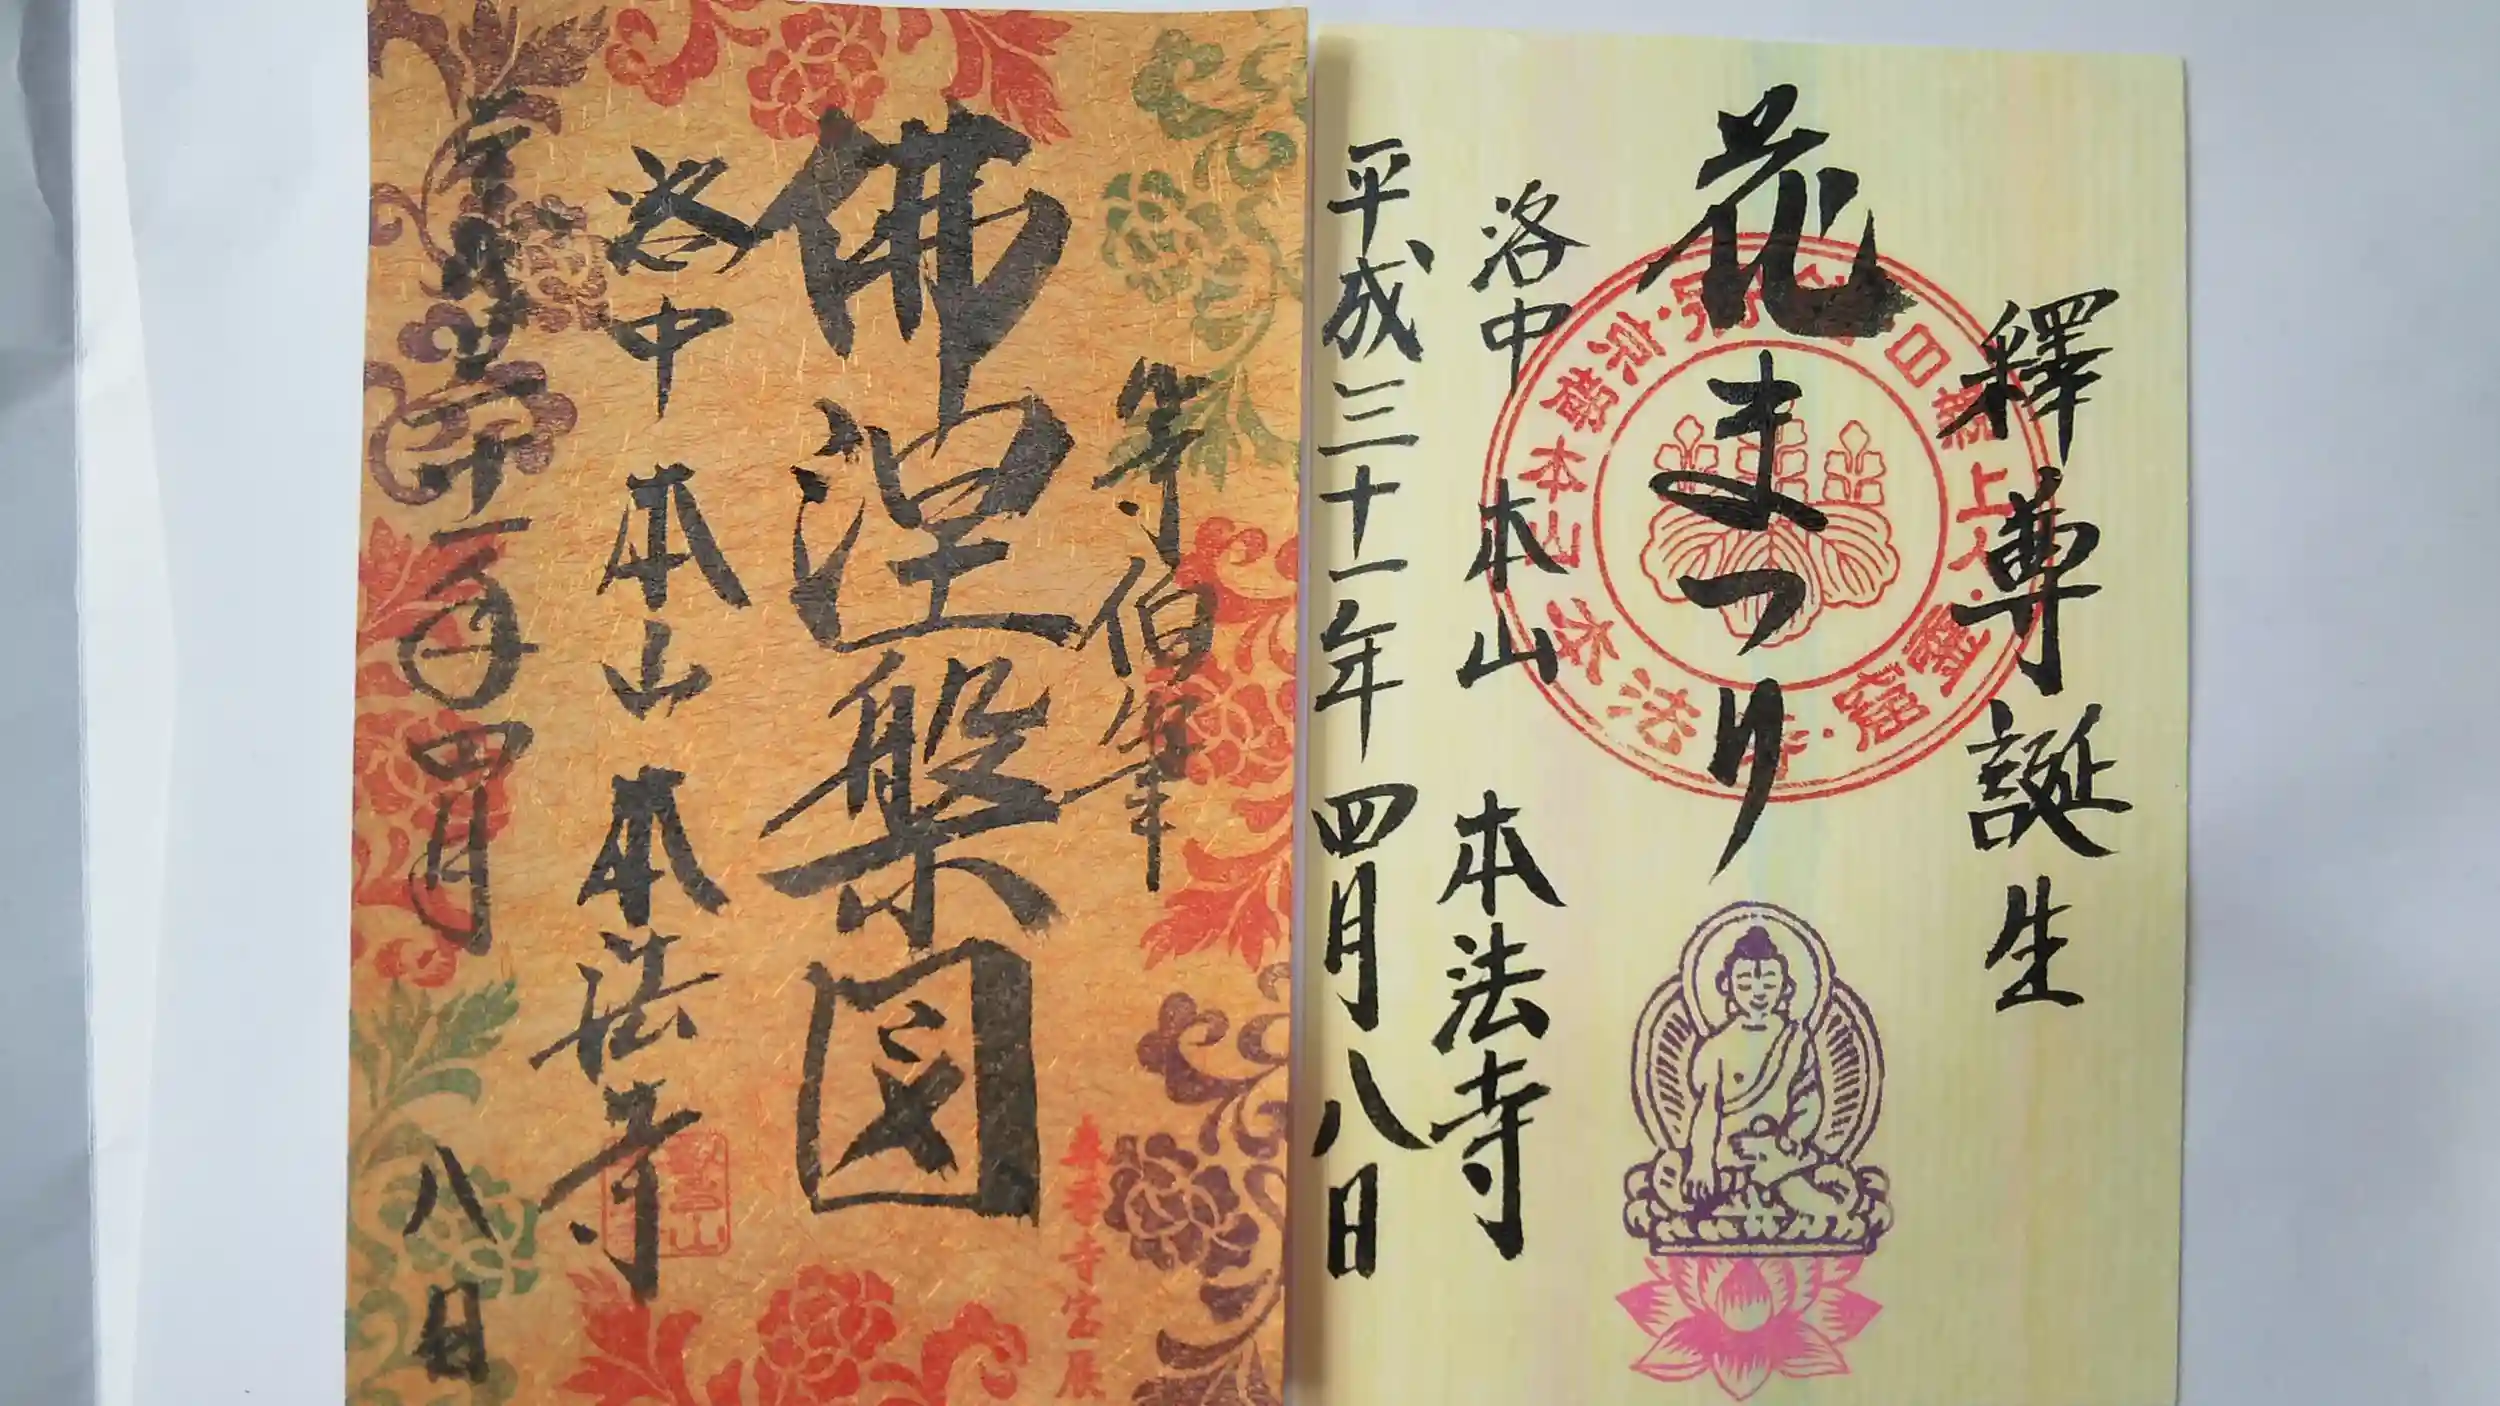 等伯筆
佛涅槃図
洛中 本山 本法寺
年四月八日
春季寺宝展
釋尊誕生
花まつり
洛中 本山 本法寺
平成三十一年四月八日
京都 本山 本法寺
日親上人
靈窟